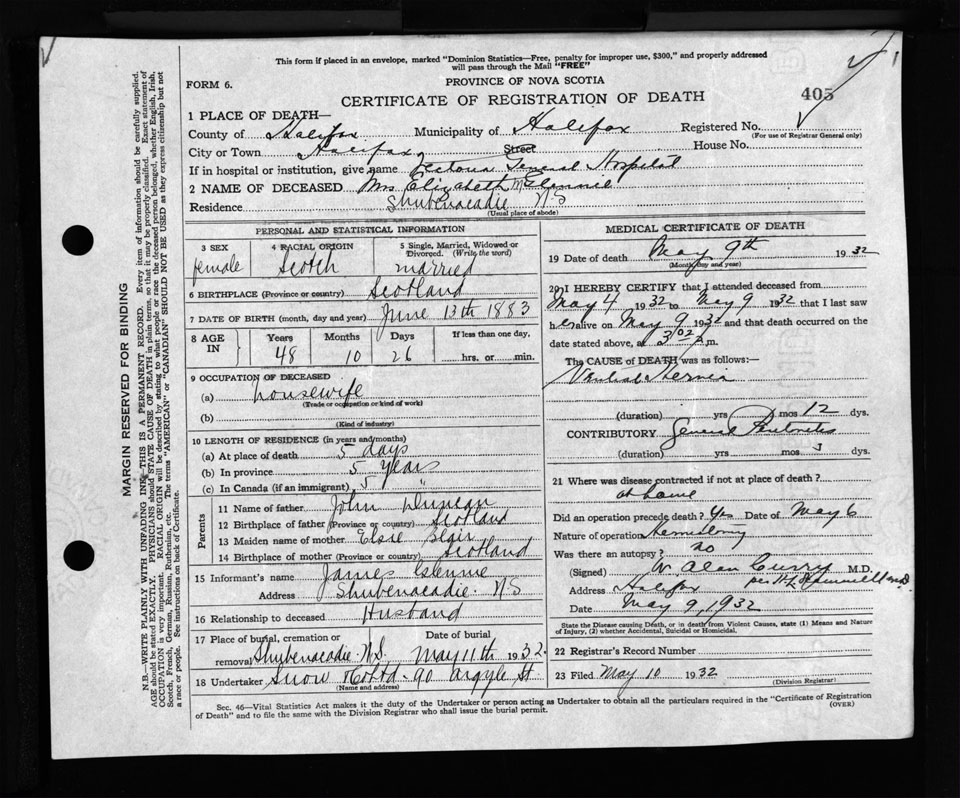 This form if placed in an envelope, marked "Dominion Statistics—Free, penalty for improper use, $300," and properly addressed
will pass through the Mail "FREE"
FORM 6.
PROVINCE OF NOVA SCOTIA
CERTIFICATE OF REGISTRATION OF DEATH
405
1 PLACE OF DEATH—
County of Halifax Municipality of Halifax Registered No.
(For use of Registrar General only)
City or Town Halifax Street House No.
If in hospital or institution, give name Victoria General Hospital
2 NAME OF DECEASED Mrs Elizabeth Glennie
Residence Shubenacadie N S
(Usual place of abode)
PERSONAL AND STATISTICAL INFORMATION
3 SEX
female
4 RACIAL ORIGIN
Scotch
5 Single, Married, Widowed or
Divorced. (Write the word)
married
6 BIRTHPLACE (Province or country) Scotland
7 DATE OF BIRTH (month, day and year) June 13th 1883
8 AGE IN
Years Months Days If less than one day,
48 10 26 hrs. or min.
9 OCCUPATION OF DECEASED
(a) housewife
(Trade or occupation or kind of work)
(b)
(Kind of industry)
10 LENGTH OF RESIDENCE (in years and months)
(a) At place of death 5 days
(b) In province 5 years
(c) In Canada (if an immigrant) 5 "
Parents
11 Name of father John Duncan
12 Birthplace of father (Province or country) Scotland
13 Maiden name of mother Elsie Blair
14 Birthplace of mother (Province or country) Scotland
15 Informant's name James Glennie
Address Shubenacadie. N S
16 Relationship to deceased Husband
17 Place of burial, cremation or
removal Shubenacadie N.S.
Date of burial
May 11th 1932.
18 Undertaker Snow 90 Argyle St.
(Name and address)
MEDICAL CERTIFICATE OF DEATH
19 Date of death May 9th 1932
(Month, day and year)
20 I HEREBY CERTIFY that I attended deceased from
May 4 1932 to May 9 1932 that I last saw
her alive on May 9 1932 and that death occurred on
date stated above, at m.
The CAUSE of DEATH was as follows:—
Ventral Hernia
(duration) yrs mos 12 dys.
CONTRIBUTORY General Peritonitis
(duration) yrs mos 3 dys.
21 Where was disease contracted if not at place of death?
at home
Did an operation precede death? Yes Date of May 6
Nature of operation
Was there an autopsy? no
(Signed) W Alan Curry M.D.
Address Halifax
Date May 9, 1932
State the Disease causing Death, or in death from Violent Causes, state (1) Means and Nature
of Injury, (2) whether Accidental, Suicidal or Homicidal.
22 Registrar's Record Number
23 Filed May 10 1932
(Division Registrar)
Sec. 46—Vital Statistics Act makes it the duty of the Undertaker or person acting as Undertaker to obtain all the particulars required in the "Certificate of Registration
of Death" and to file the same with the Division Registrar who shall issue the burial permit.
(OVER)
MARGIN RESERVED FOR BINDING
N.B.—WRITE PLAINLY WITH UNFADING INK—THIS IS A PERMANENT RECORD. Every item of information should be carefully supplied.
AGE should be stated EXACTLY. PHYSICIANS should STATE CAUSE OF DEATH in plain terms, so that it may be properly classified. Exact statement of
OCCUPATION is very important. RACIAL ORIGIN will be described by stating to what people or race the deceased person belonged, whether English, Irish,
Scotch, French, German, Russian, Ruthenian, etc. The terms "AMERICAN" or "CANADIAN" SHOULD NOT BE USED as they express citizenship but not
a race or people. See instructions on back of Certificate.